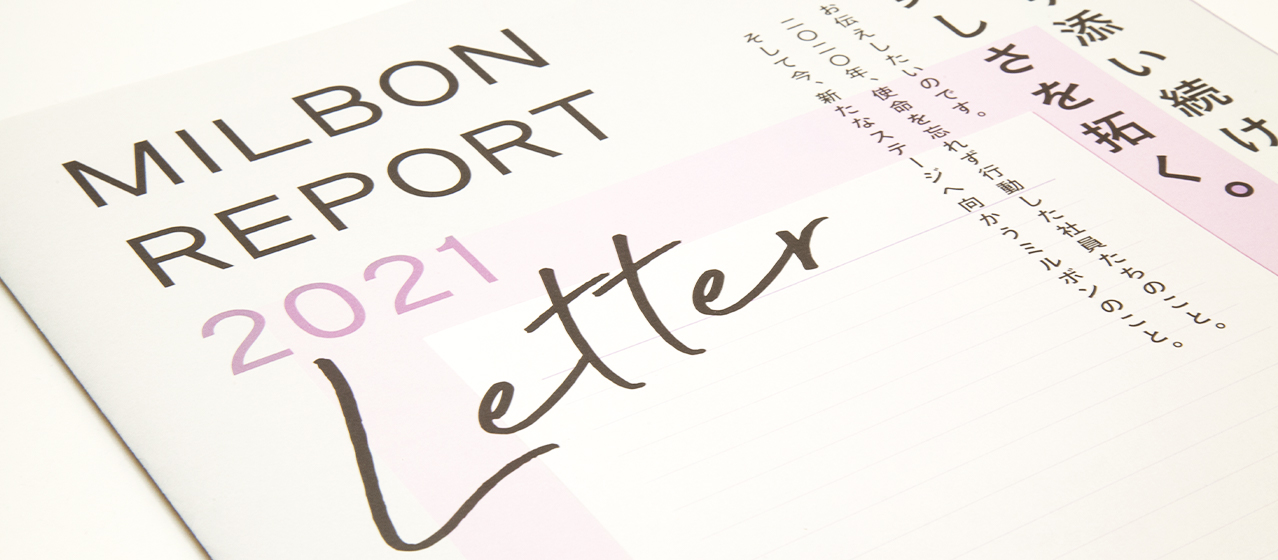 MILBON
REPORT
2021
Letter
添い続け
しさを拓く。
お伝えしたいのです。
二〇二〇年、使命を忘れず行動した社員たちのこと。
そして今、新たなステージへ向かうミルボンのこと。